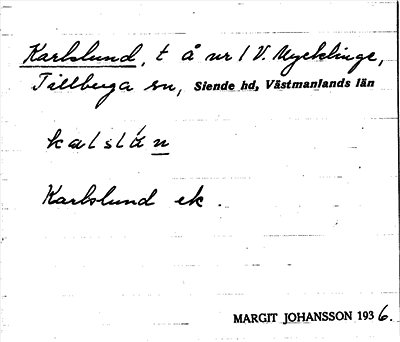 Karlslund, t å nr 1 V. Mycklinge,
Tillberga sn, Siende hd, Västmanlands län
kalslán
Karlslund ek.
MARGIT JOHANSSON 1936.